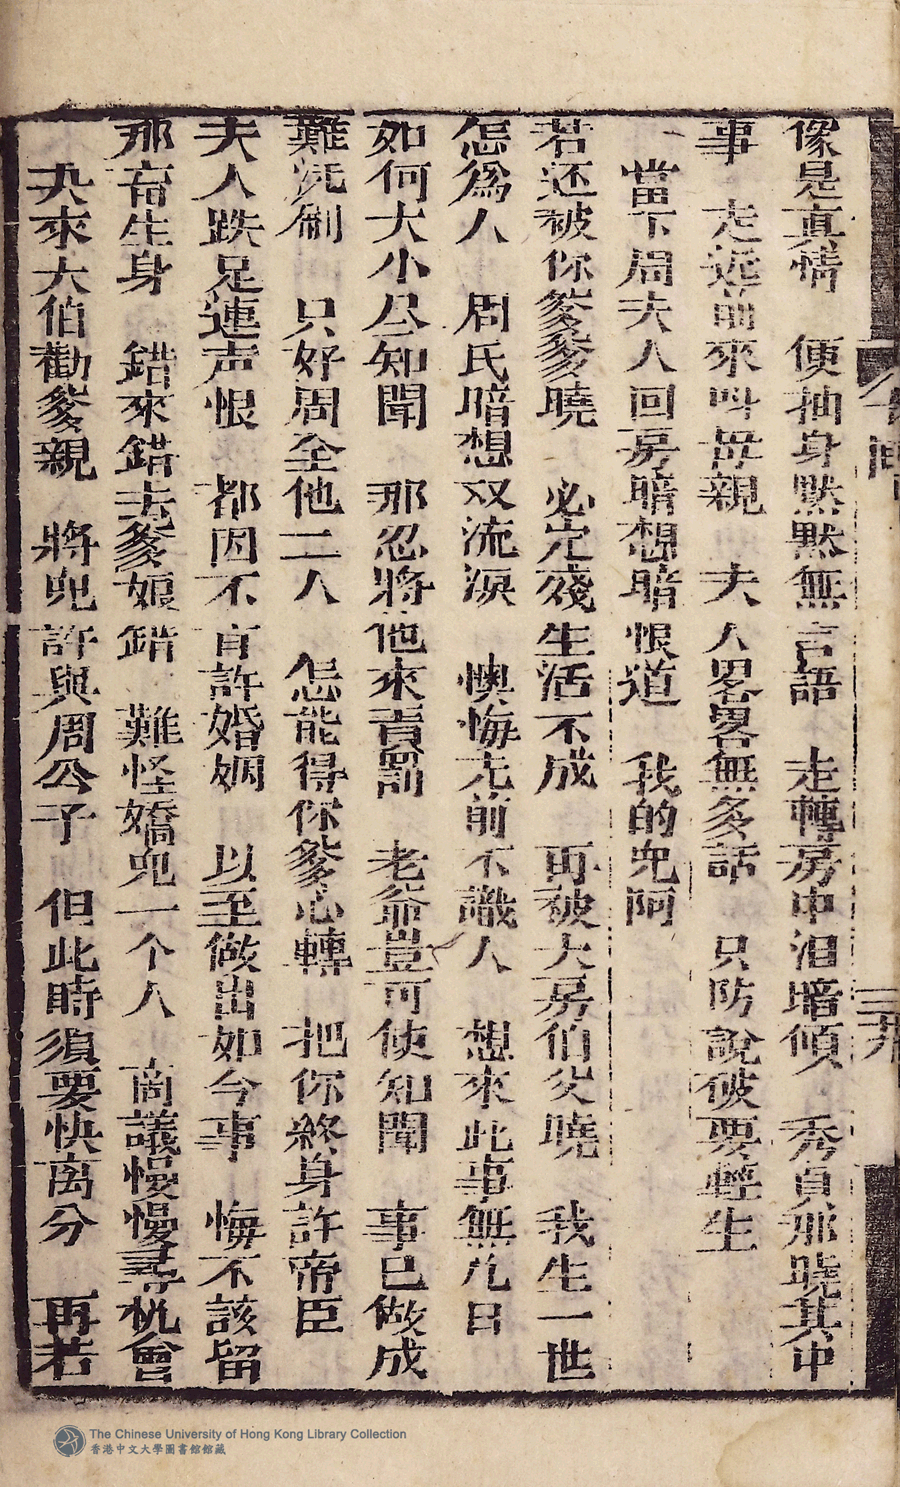 像是真情　便抽身默默無言語　走轉房中泪暗傾　秀貞那曉其中
事　走近前來叫母親　夫人畧畧無多話　只防說破要輕生
當下周夫人回房暗想暗恨道　我的兒阿
若还被你爹爹曉　必定殘生活不成　再被大房伯父曉　我生一世
怎爲人　周氏暗想双流淚　懊悔尢前不識人　想來此事無凢日
如何大小尽知聞　那忍將他來責罰　老爺豈可使知聞　事已做成
難洗刷　只好周全他二人　怎能得你爹心轉　把你終身許帝臣
夫人跌足連声恨　都因不肯許婚姻　以至做出如今事　悔不該留
那畜生身　錯來錯去爹娘錯　難怪嬌兒一个人　商議慢慢尋机會
央來大伯勸爹親　將兒許與周公子　但此時須要快离分　再若
三九
The Chinese University of Hong Kong Library Collection
香港中文大學圖書館館藏